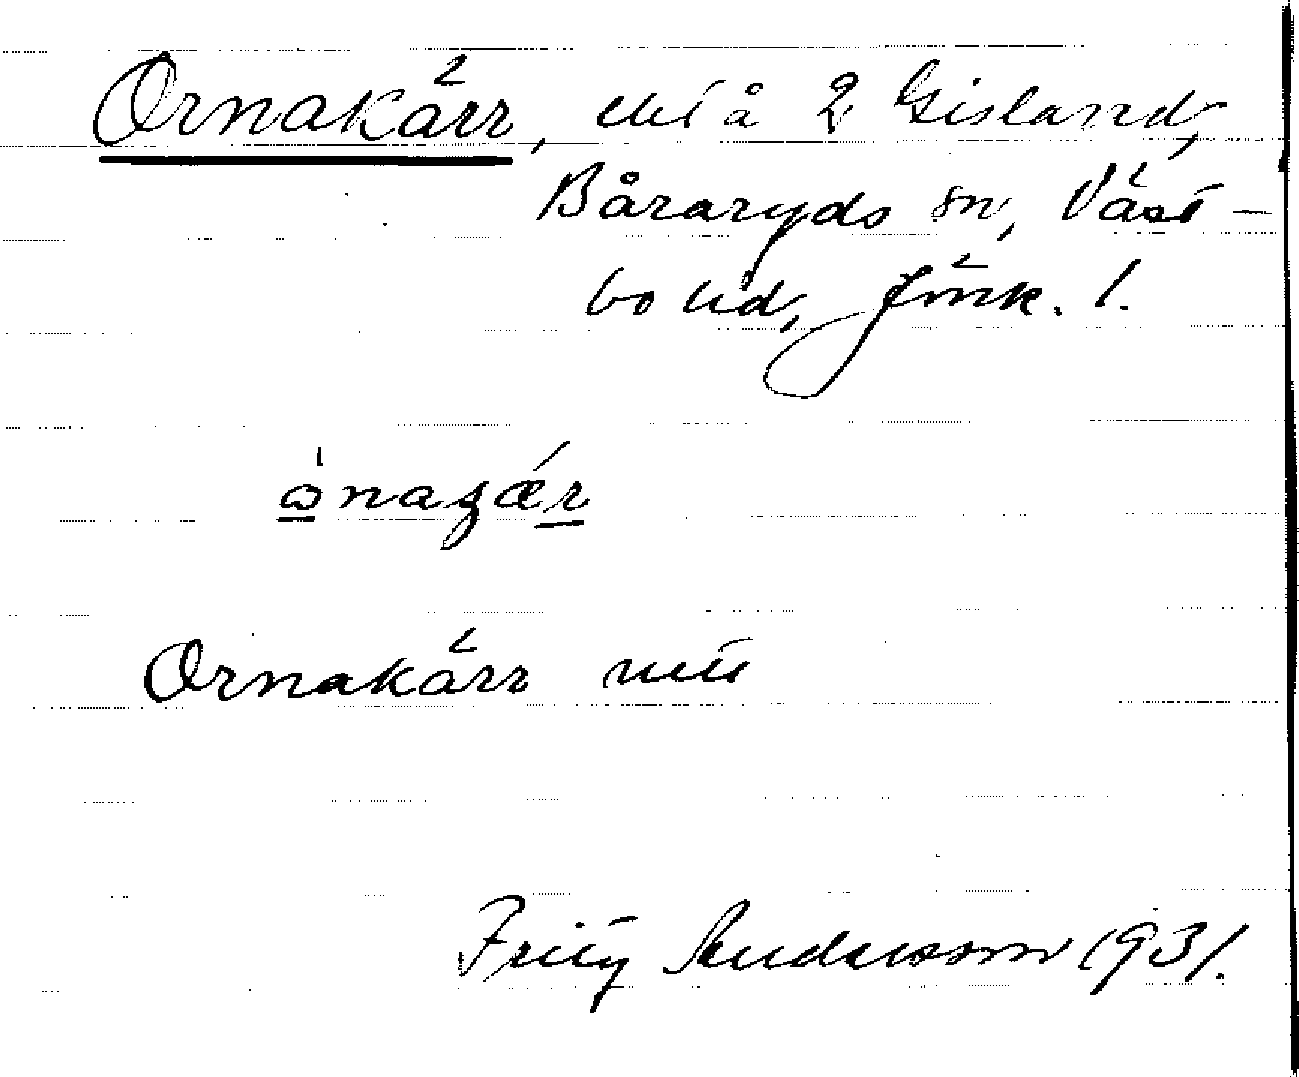 Ornakärr, utl å Gisland,
Båraryds sn, Väst-
bo hd, Jönk. l.
Ornakärr
Fritz Andersson 1931.